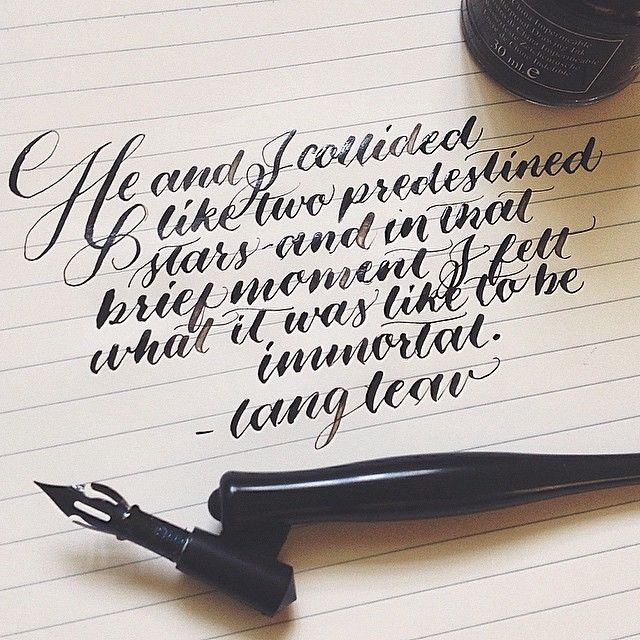 He and I collided
like two predestined
stars and in that
brief moment I felt
what it was like to be
immortal.
- lang leav
30 ml e